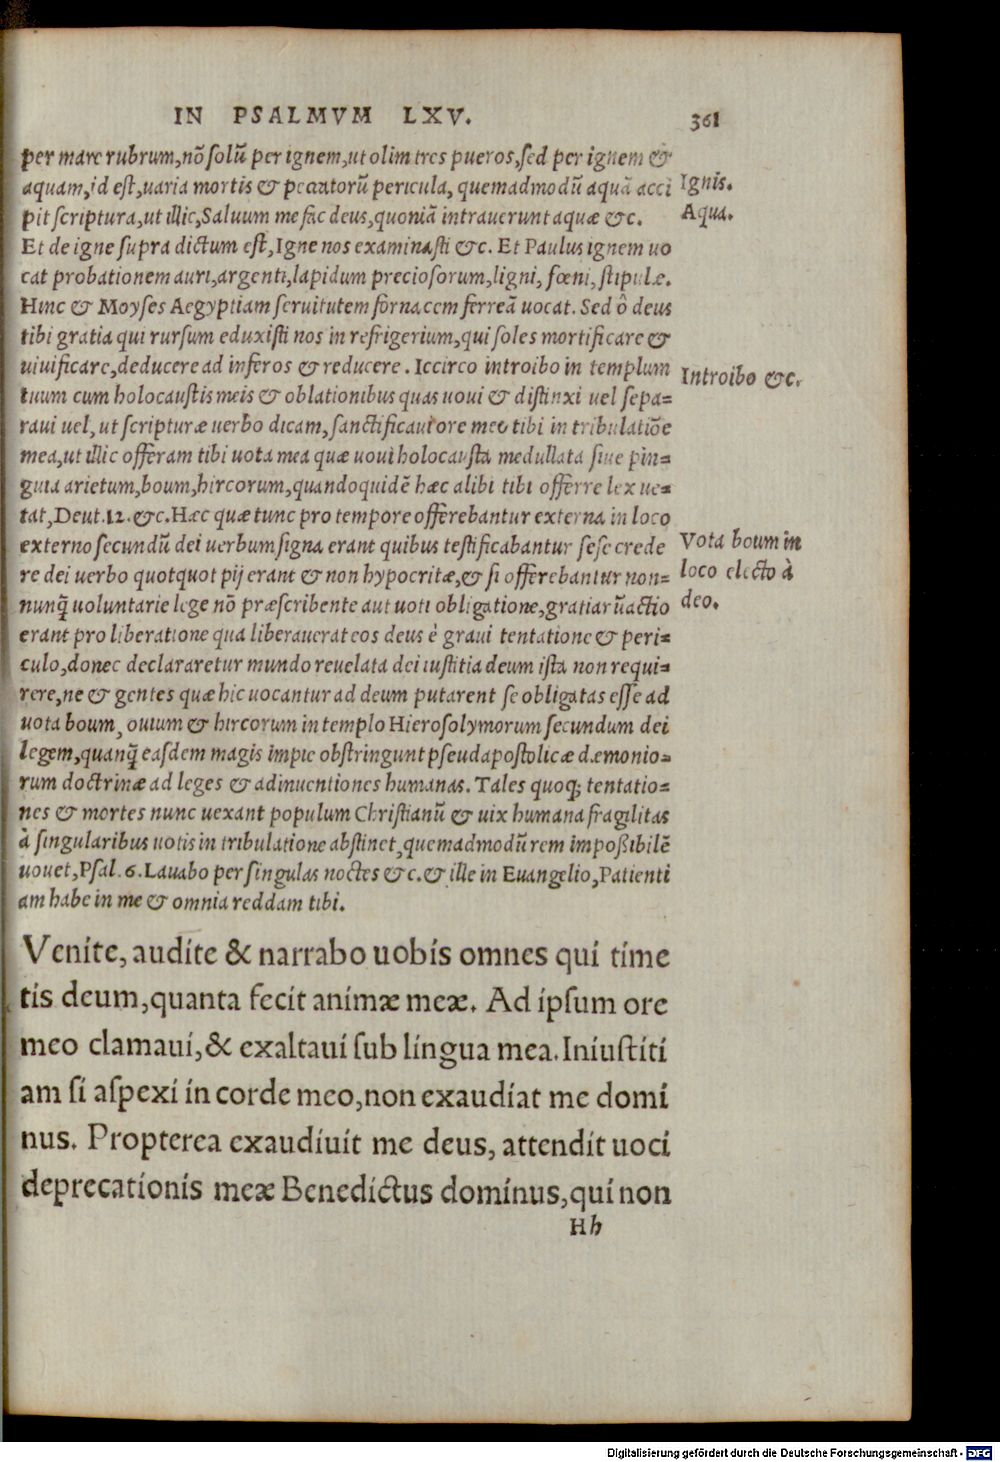 IN PSALMVM LXV.
361
per mare rubrum, nõ solũ per ignem, ut olim tres pueros, sed per ignem &
aquam, id est, uaria mortis & peccatorũ pericula, quemadmodũ aquã acci
pit scriptura, ut illic, Saluum me fac deus, quoniã intrauerunt aquæ &c.
Ignis.
Aqua.
Et de igne supra dictum est, Igne nos examinasti &c. Et Paulus ignem uo
cat probationem auri, argenti, lapidum preciosorum, ligni, fœni, stipulæ.
Hinc & Moyses Aegyptiam seruitutem fornacem ferreã uocat. Sed ô deus
tibi gratia qui rursum eduxisti nos in refrigerium, qui soles mortificare &
uiuificare, deducere ad inferos & reducere. Iccirco introibo in templum
Introibo &c.
tuum cum holocaustis meis & oblationibus quas uoui & distinxi uel sepa=
raui uel, ut scripturæ uerbo dicam, sanctificaui ore meo tibi in tribulatiõe
mea, ut illic offeram tibi uota mea quæ uoui holocausta medullata siue pin=
guia arietum, boum, hircorum, quandoquidẽ hæc alibi tibi offerre lex ue=
tat, Deut. 12. &c. Hæc quæ tunc pro tempore offerebantur externa in loco
externo secundũ dei uerbum signa erant quibus testificabantur sese crede
re dei uerbo quotquot pij erant & non hypocritæ, & si offerebantur non=
Vota boum in
loco electo à
deo.
nunq̃ uoluntarie lege nõ præscribente aut uoti obligatione, gratiarũ actio
erant pro liberatione qua liberauerat eos deus è graui tentatione & peri=
culo, donec declararetur mundo reuelata dei iustitia deum ista non requi=
rere, ne & gentes quæ hic uocantur ad deum putarent se obligatas esse ad
uota boum, ouium & hircorum in templo Hierosolymorum secundum dei
legem, quanq̃ easdem magis impie obstringunt pseudapostolicæ dæmonio=
rum doctrinæ ad leges & adinuentiones humanas. Tales quoq; tentatio=
nes & mortes nunc uexant populum Christianũ & uix humana fragilitas
à singularibus uotis in tribulatione abstinet, quemadmodũ rem impoßibilẽ
uouet, Psal. 6. Lauabo per singulas noctes &c. & ille in Euangelio, Patienti
am habe in me & omnia reddam tibi.
Venite, audite & narrabo uobis omnes qui time
tis deum, quanta fecit animæ meæ. Ad ipsum ore
meo clamaui, & exaltaui sub lingua mea. Iniustiti
am si aspexi in corde meo, non exaudiat me domi
nus. Propterea exaudiuit me deus, attendit uoci
deprecationis meæ Benedictus dominus, qui non
Hh
Digitalisierung gefördert durch die Deutsche Forschungsgemeinschaft - DFG